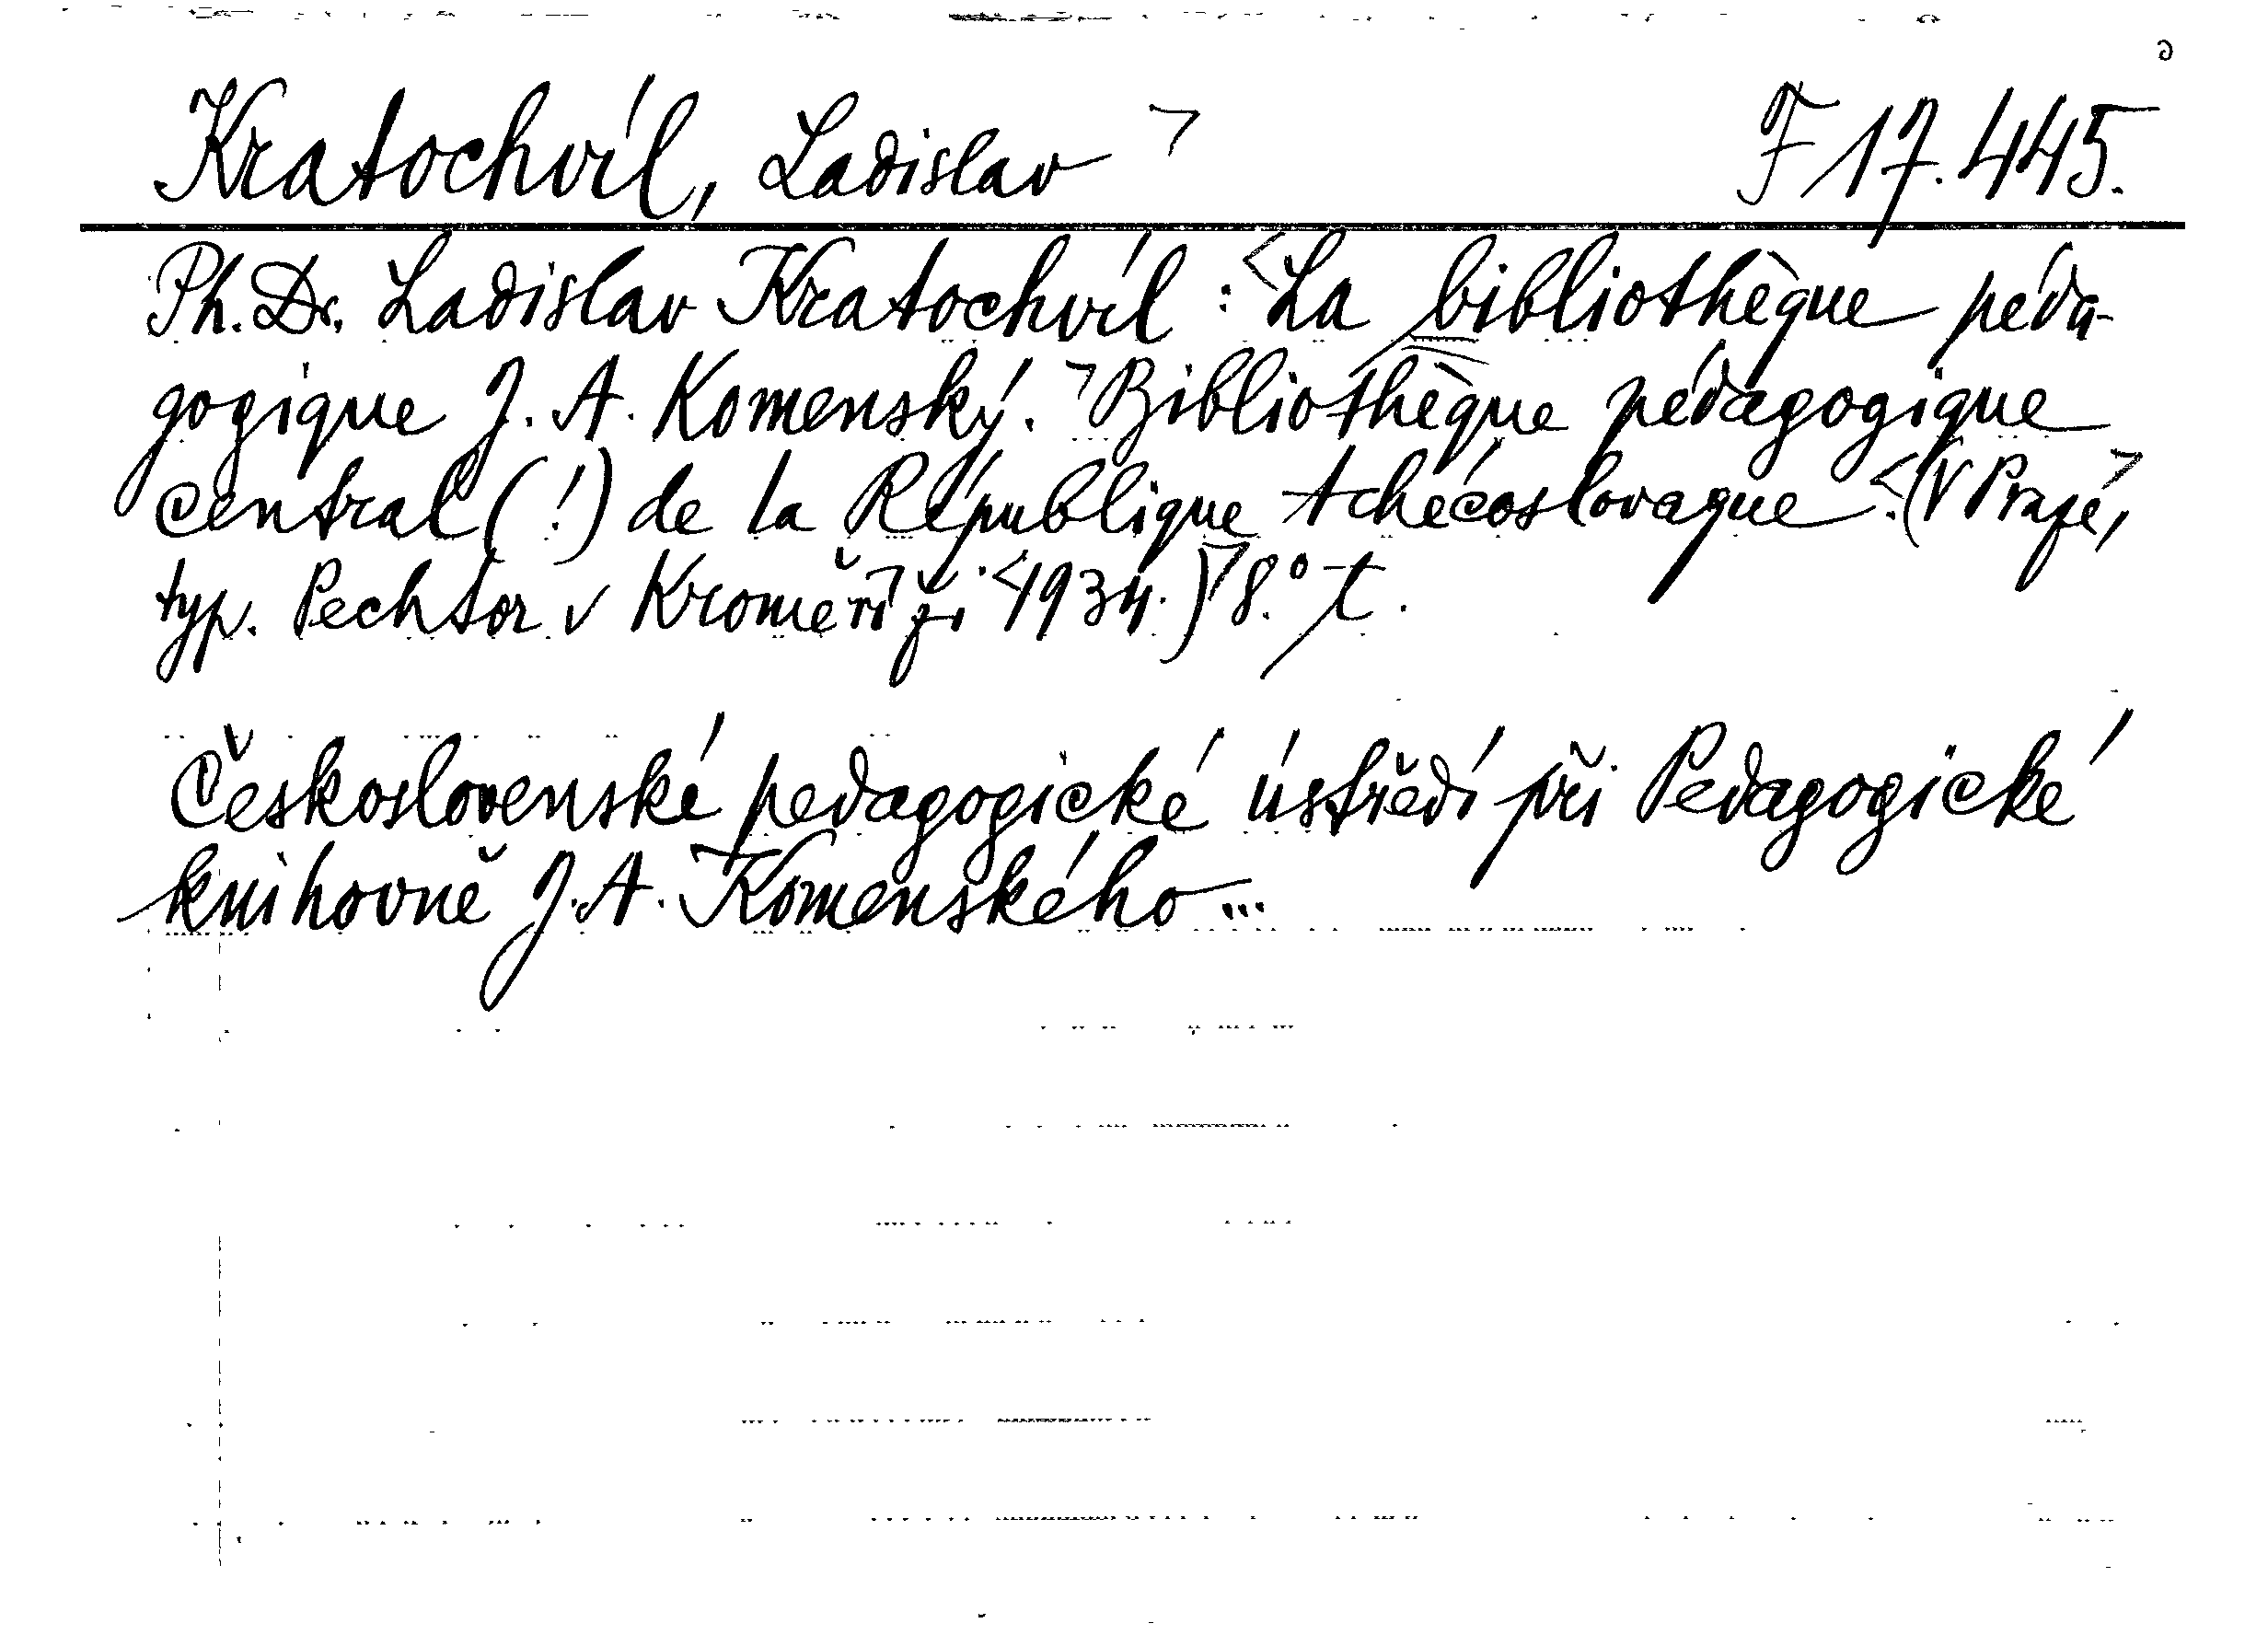 Kratochvíl, Ladislav ¬ F 17.445.
Ph. Dr. Ladislav Kratochvíl : <La bibliothèque péda-
gogique J. A. Komenský. ¬ Bibliothèque pédagogique
central (!) de la République tchécoslovaque <. (V Praze, ¬
typ. Pechtor v Kroměříži <1934.) ¬ 8.° t.
Československé pedagogické ústředí při Pedagogické
knihovně J. A. Komenského...